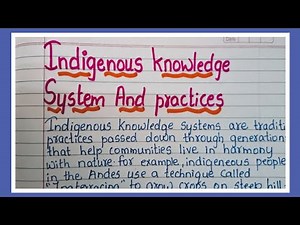 Indigenous knowledge
System And practices
Indigenous knowledge systems are traditi
practices passed down through generation
that help communities live in harmony
with nature for example, indigeneous people
in the Andes use a technique called
to grow crops on steep hill